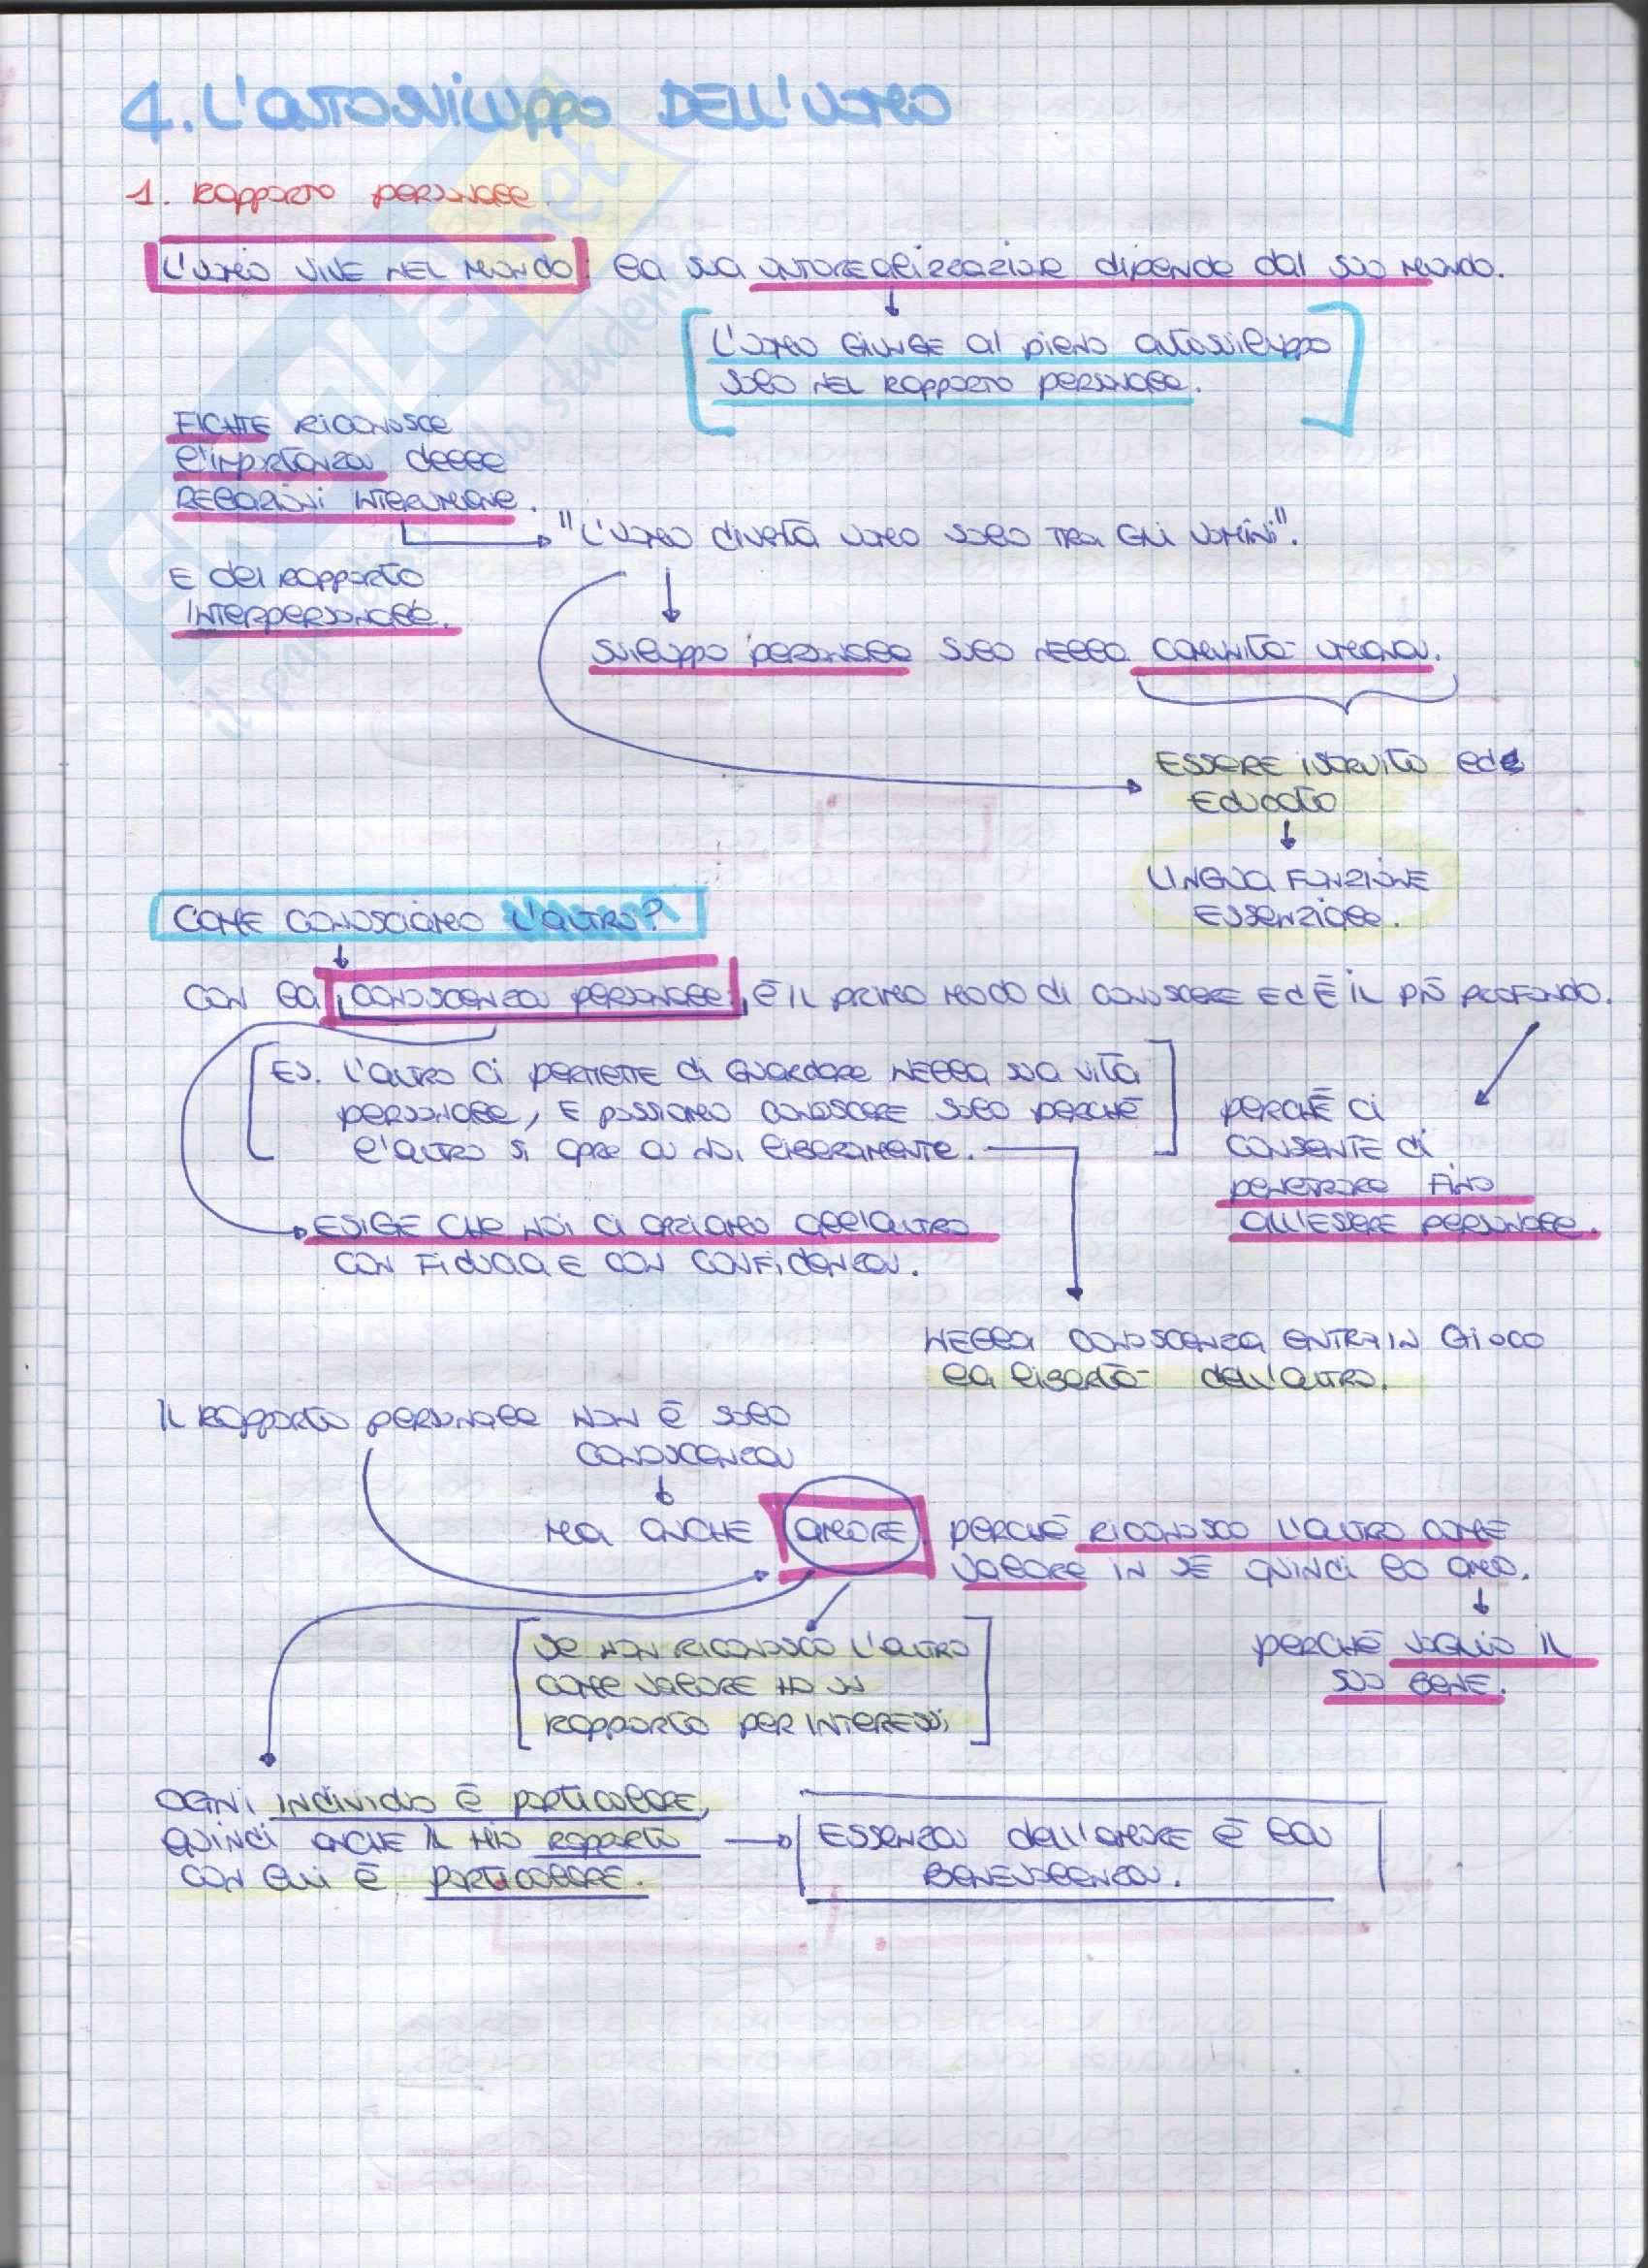 4. L'AUTOSVILUPPO DELL'UOMO
1. RAPPORTO PERSONALE.
L'UOMO VIVE NEL MONDO: la sua AUTOREALIZZAZIONE dipende dal suo MONDO.
L'UOMO GIUNGE al pieno autosviluppo
solo NEL RAPPORTO PERSONALE.
FICHTE RICONOSCE
l'importanza delle
RELAZIONI INTERUMANE.
"L'UOMO diventa UOMO solo TRA GLI UOMINI".
E del RAPPORTO
INTERPERSONALE.
SVILUPPO PERSONALE solo nella COMUNITÀ UMANA.
ESSERE ISTRUITO ed
EDUCATO
LINGUA FUNZIONE
ESSENZIALE.
COME CONOSCIAMO L'ALTRO?
CON la CONOSCENZA PERSONALE, È IL PRIMO MODO di CONOSCERE ED È IL PIÙ PROFONDO.
ES. L'ALTRO CI PERMETTE di GUARDARE NELLA SUA VITA
PERSONALE, E POSSIAMO CONOSCERE SOLO PERCHÉ
L'ALTRO SI APRE A NOI LIBERAMENTE.
PERCHÉ CI
CONSENTE di
PENETRARE FINO
ALL'ESSERE PERSONALE.
ESIGE CHE NOI CI APRIAMO ALL'ALTRO
CON FIDUCIA E CON CONFIDENZA.
NELLA CONOSCENZA ENTRA IN GIOCO
la libertà dell'ALTRO.
IL RAPPORTO PERSONALE NON È SOLO
CONOSCENZA
MA ANCHE AMORE PERCHÉ RICONOSCO L'ALTRO COME
VALORE IN SÉ QUINDI LO AMO.
PERCHÉ VOGLIO IL
SUO BENE.
SE NON RICONOSCO L'ALTRO
COME VALORE HO UN
RAPPORTO PER INTERESSI
OGNI INDIVIDUO È PARTICOLARE,
QUINDI ANCHE IL MIO RAPPORTO
CON LUI È PARTICOLARE.
ESSENZA dell'AMORE È LA
BENEVOLENZA.